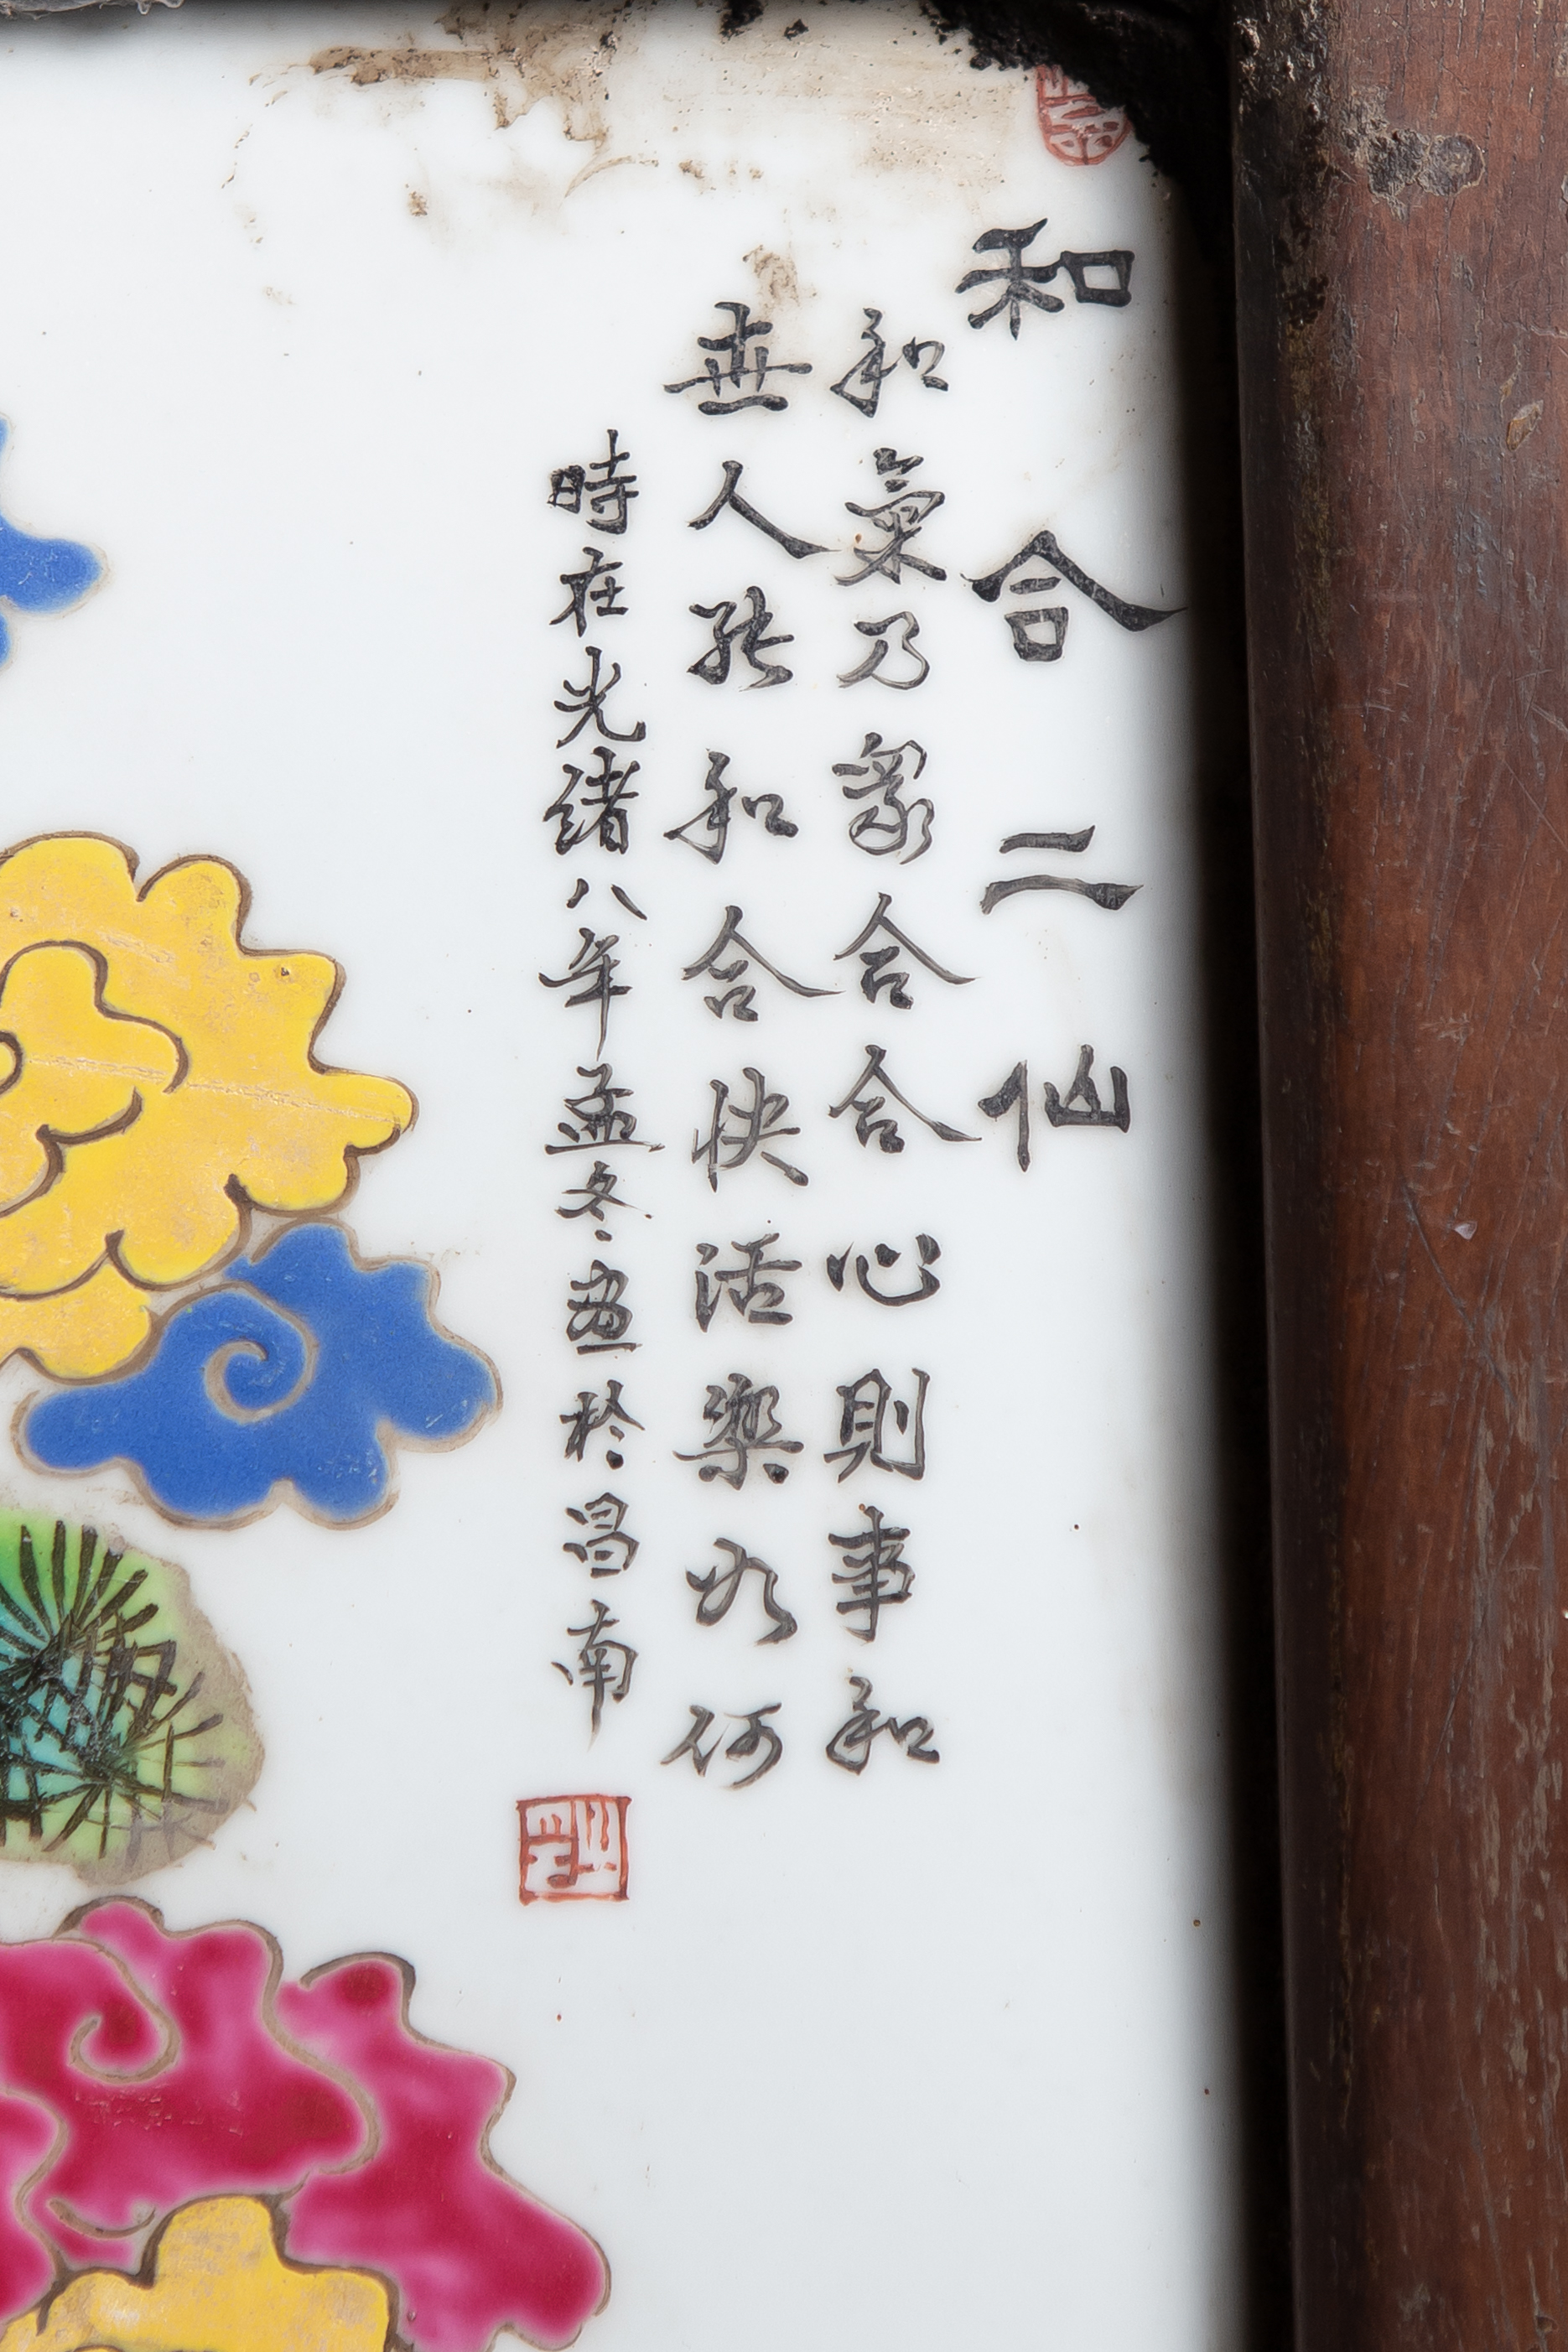 和合二仙
和氣乃眾合合心則事和
世人能和合快活樂如何
時在光緒八年孟冬畫於昌南